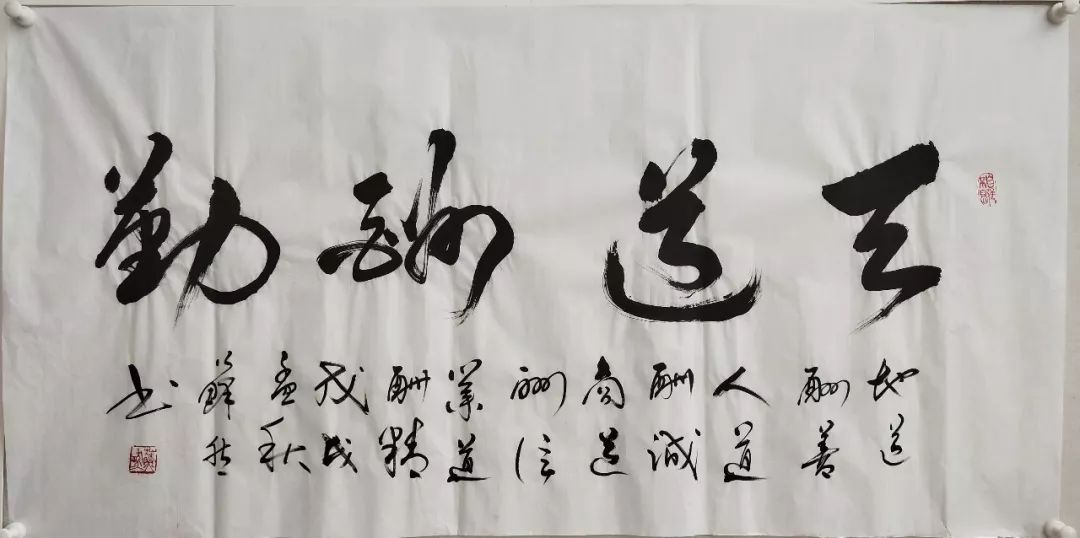 天道酬勤
地道
酬善
人道
酬誠
商道
酬信
業道
酬精
戊戌
孟秋
书